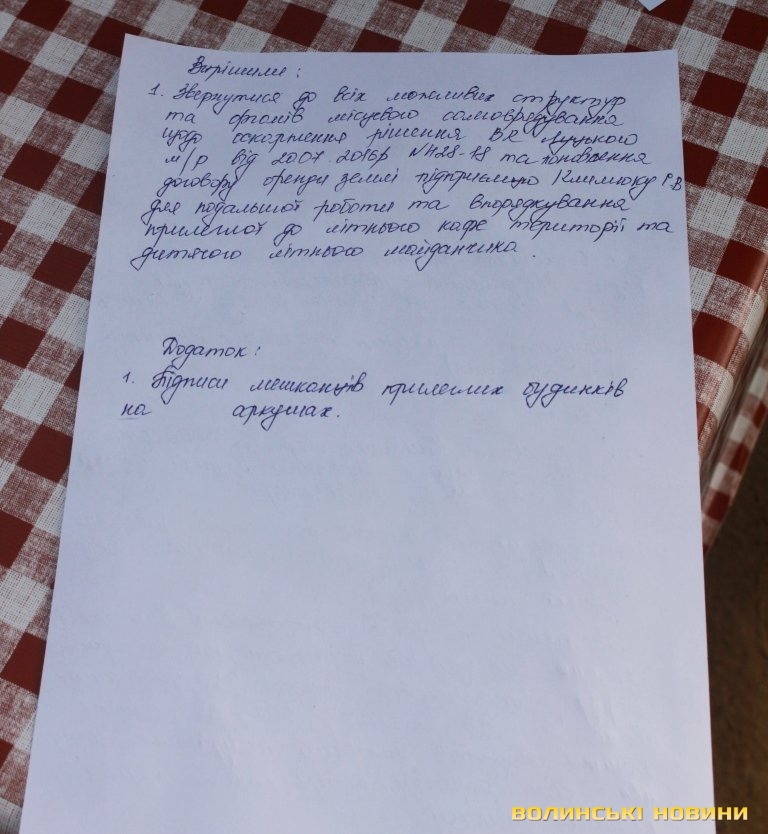 Вирішили:
1. Звернутися до всіх можливих структур
та органів місцевого самоврядування
щодо оскарження рішення ВК Луцького
м/р від 20.07.2016р №428-18 та поновлення
договору оренди землі підприємцю Климюку Р В
для подальшої роботи та впорядкування
прилеглої до літнього кафе території та
дитячого літнього майданчика.
Додаток:
1. Підписи мешканців прилеглих будинків
на аркушах.
ВОЛИНСЬКІ НОВИНИ